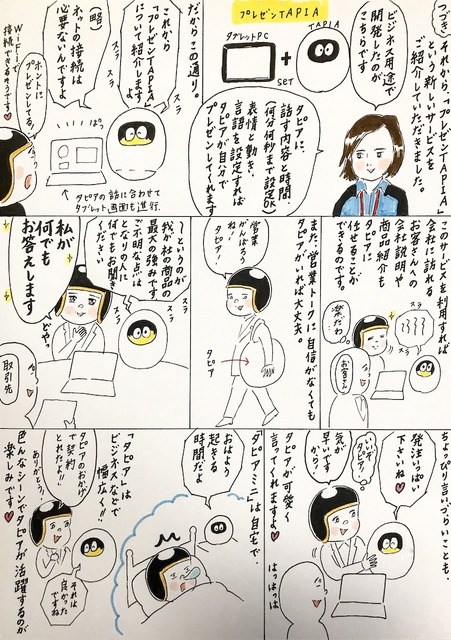 (つづき)それから、「プレゼンTAPIA」
という新しいサービスを
ご紹介していただきました。
ビジネス用途で
開発したのが
こちらです
プレゼンTAPIA
タブレットPC
TAPIA
+
SET
タピアに、
話す内容と時間、
(何分何秒まで設定OK)
表情と動き、
言語を設定すれば
タピアが自分で
プレゼンしてくれます
だからこの通り。
これから
「プレゼンTAPIA」
について紹介しますよ
スラ
スラ
(略)
ネットの接続は
必要ないんですよ
スラ
スラ
Wi-Fiで
接続できるそうです♥
ホントに
プレゼンしてる…
ぱっ
↑タピアの話に合わせて
タブレット画面も進行
このサービスを利用すれば
会社に訪れる
お客さんへの
会社説明や
商品紹介も
タピアに
任せることが
できるのです。
スラ
スラ
楽だわ
お客さん
また、営業トークに自信がなくても
タピアがいれば大丈夫。
営業
がんばろう
ね!
タピア
〜というのが
我が社の商品の
最大の強みです
ご不明な点は
となりの人に
何でもお聞き
ください
スラ
スラ
私が
何でも
お答えします
どやっ
取引先
ちょっぴり言いづらいことも、
発注いっぱい
下さいね♥
いいぞ
タピア!
気が
早いです
から
タピアが可愛く
言ってくれますよ♥
はっはっは
「タピアミニ」は自宅で、
おはよう
起きる
時間だよ
「タピア」は
ビジネスなどで
幅広く!!
タピアのおかげ
で契約
とれたよ!!
ありがとう!
それは
良かった
ですね
色んなシーンでタピアが活躍するのが
楽しみです♥